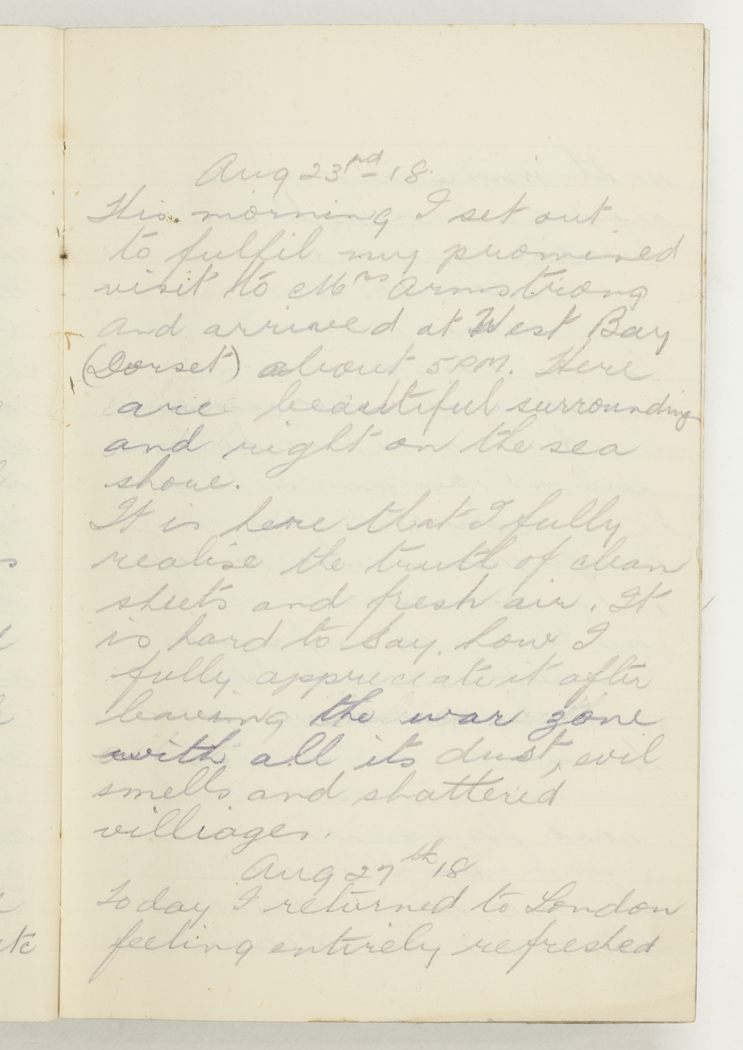 Aug 23rd 18.
This morning I set out
to fulfil my promised
visit to Mrs Armstrong
and arrived at West Bay
(Dorset) about 5 PM. Here
are beautiful surrounding
and right on the sea
shore.
It is here that I fully
realise the truth of clean
sheets and fresh air. It
is hard to say how I
fully appreciate it after
leaving the war zone
with all its dust, evil
smells and shattered
villiages.
Aug 27th 18
Today I returned to London
feeling entirely refreshed
etc